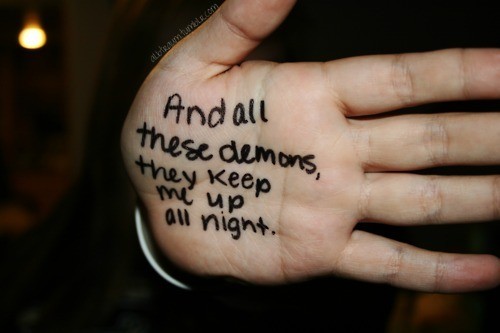 And all
these demons,
they keep
me up
all night.